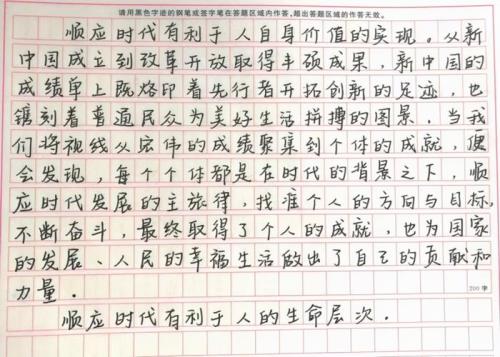 请用黑色字迹的钢笔或签字笔在答题区域内作答,超出答题区域的作答无效。
顺应时代有利于人自身价值的实现。从新
中国成立到改革开放取得丰硕成果，新中国的
成绩单上既烙印着先行者开拓创新的足迹，也
镌刻着普通民众为美好生活拼搏的图景。当我
们将视线从宏伟的成绩聚集到个体的成就，便
会发现，每个个体都是在时代的背景之下，顺
应时代发展的主旋律，找准个人的方向与目标，
不断奋斗，最终取得了个人的成就，也为国家
的发展、人民的幸福生活做出了自己的贡献和
力量。
200字
顺应时代有利于人的生命层次。